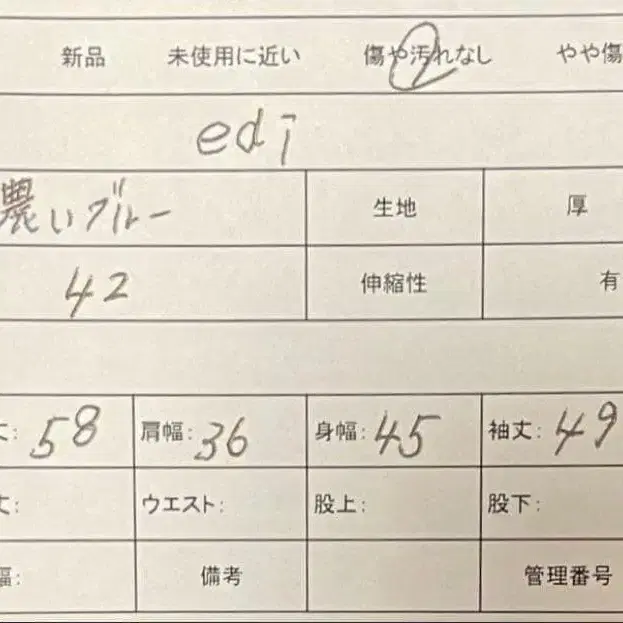 新品 未使用に近い 傷や汚れなし やや傷
edi
濃いブルー 生地 厚
42 伸縮性 有
丈: 58 肩幅: 36 身幅: 45 袖丈: 49
丈: ウエスト: 股上: 股下:
幅: 備考 管理番号